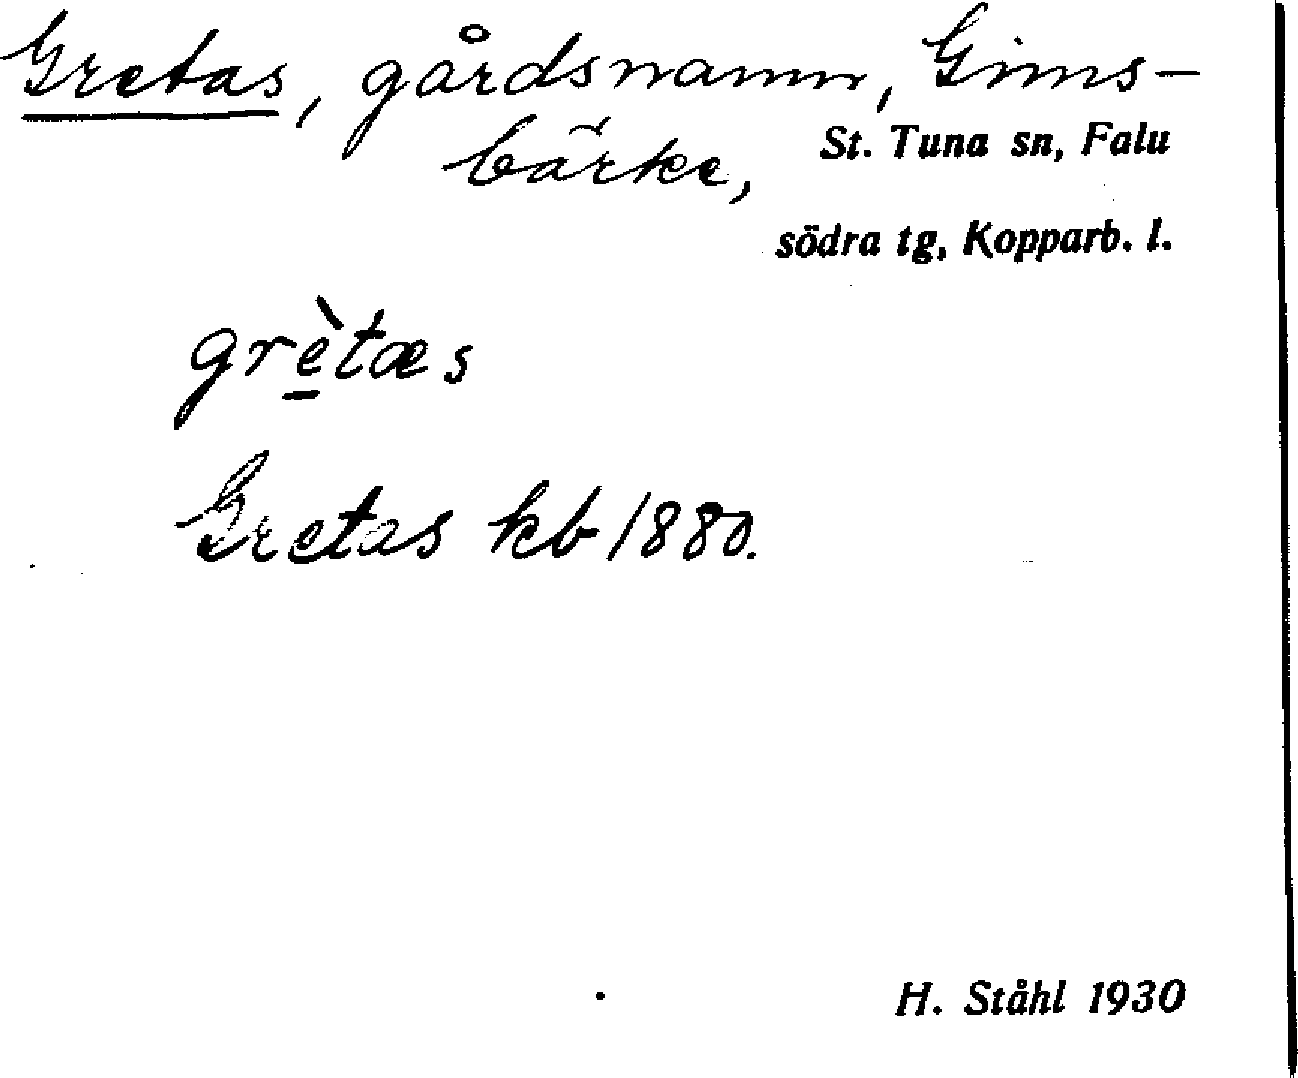 Gretas, gårdsnamn, Gims-
bärke, St. Tuna sn, Falu
södra tg, Kopparb. l.
grè̱tæs
Gretas kb 1880.
H. Ståhl 1930